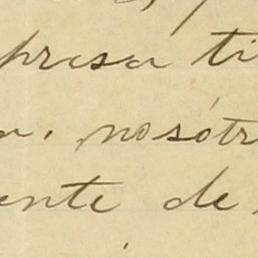 presa ti
a. nosótr
ente de